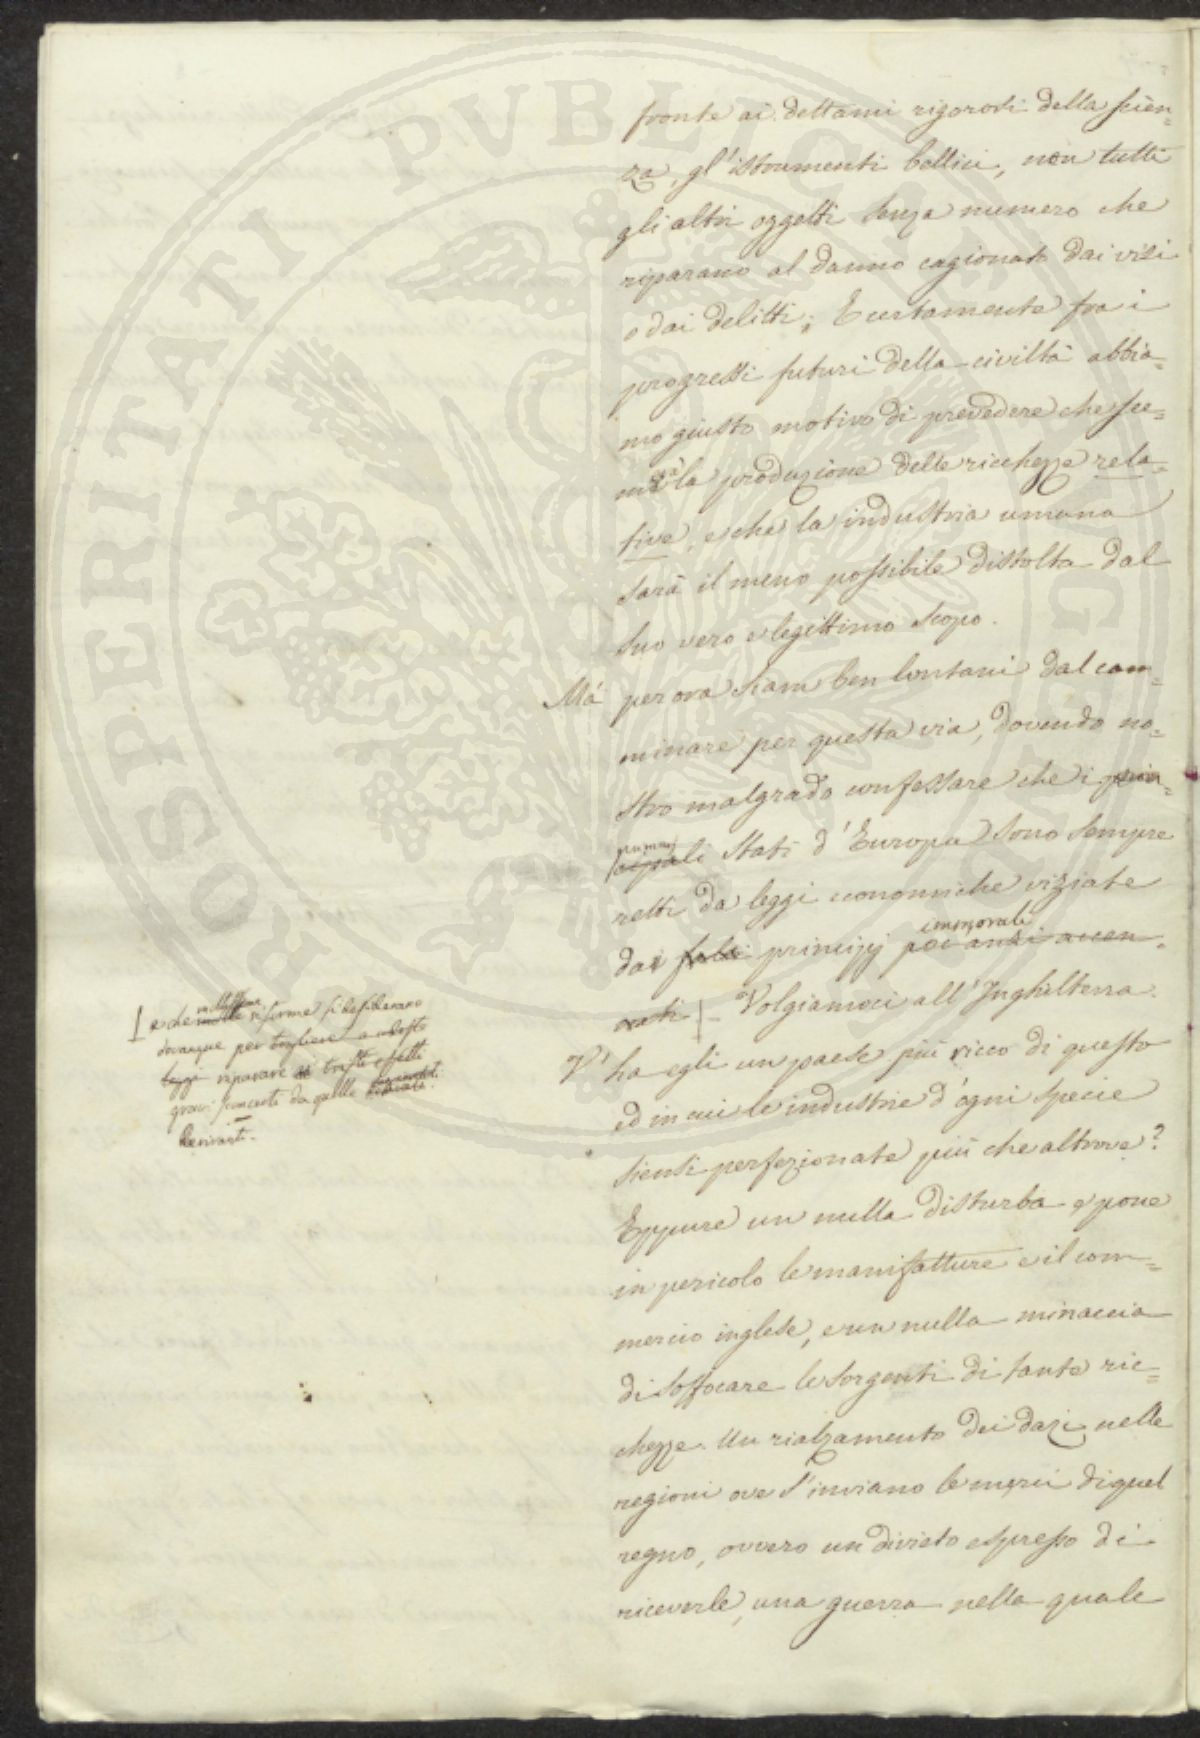 fronte ai dettami rigorosi della scien=
za, gl'istrumenti bellici, non tutti
gli altri oggetti senza numero che
riparano al danno cagionato dai vizi
o dai delitti; E certamente fra i
progressi futuri della civiltà abbia=
mo giusto motivo di prevedere che sce=
merà la produzione delle ricchezze rela=
tive, e che la industria umana
sarà il meno possibile distolta dal
suo vero e legittimo scopo.
Ma per ora siam ben lontani dal cam=
minare per questa via, dovendo no=
stro malgrado confessare che i prin=
primarj
cipali Stati d'Europa sono sempre
retti da leggi economiche viziate
immorali
dai falsi principj poc'anzi accen=
nati Volgiamoci all'Inghilterra.
V'ha egli un paese più ricco di questo
ed in cui le industrie d'ogni specie
siensi perfezionate più che altrove?
Eppure un nulla disturba e pone
in pericolo le manifatture e il com=
mercio inglese, e un nulla minaccia
di soffocare le sorgenti di tante ric=
chezze. Un rialzamento dei dazi nelle
regioni ove s'inviano le merci di quel
regno, ovvero un divieto espresso di
riceverle, una guerra nella quale
e che riforme si desiderano
dovunque per togliere a
leggi riparare ai tristi effetti
gravi sconcerti da quelle
derivanti.
PROSPERITATI PVBLICAE